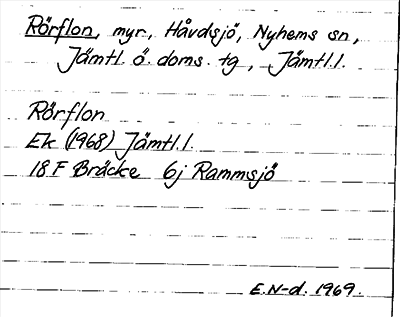 Rörflon, myr., Håvdsjö, Nyhems sn,
Jämtl. ö. doms. tg, Jämtl.l.
Rörflon
Ek (1968) Jämtl.l.
18 F Bräcke 6j Rammsjö
E.N-d. 1969.